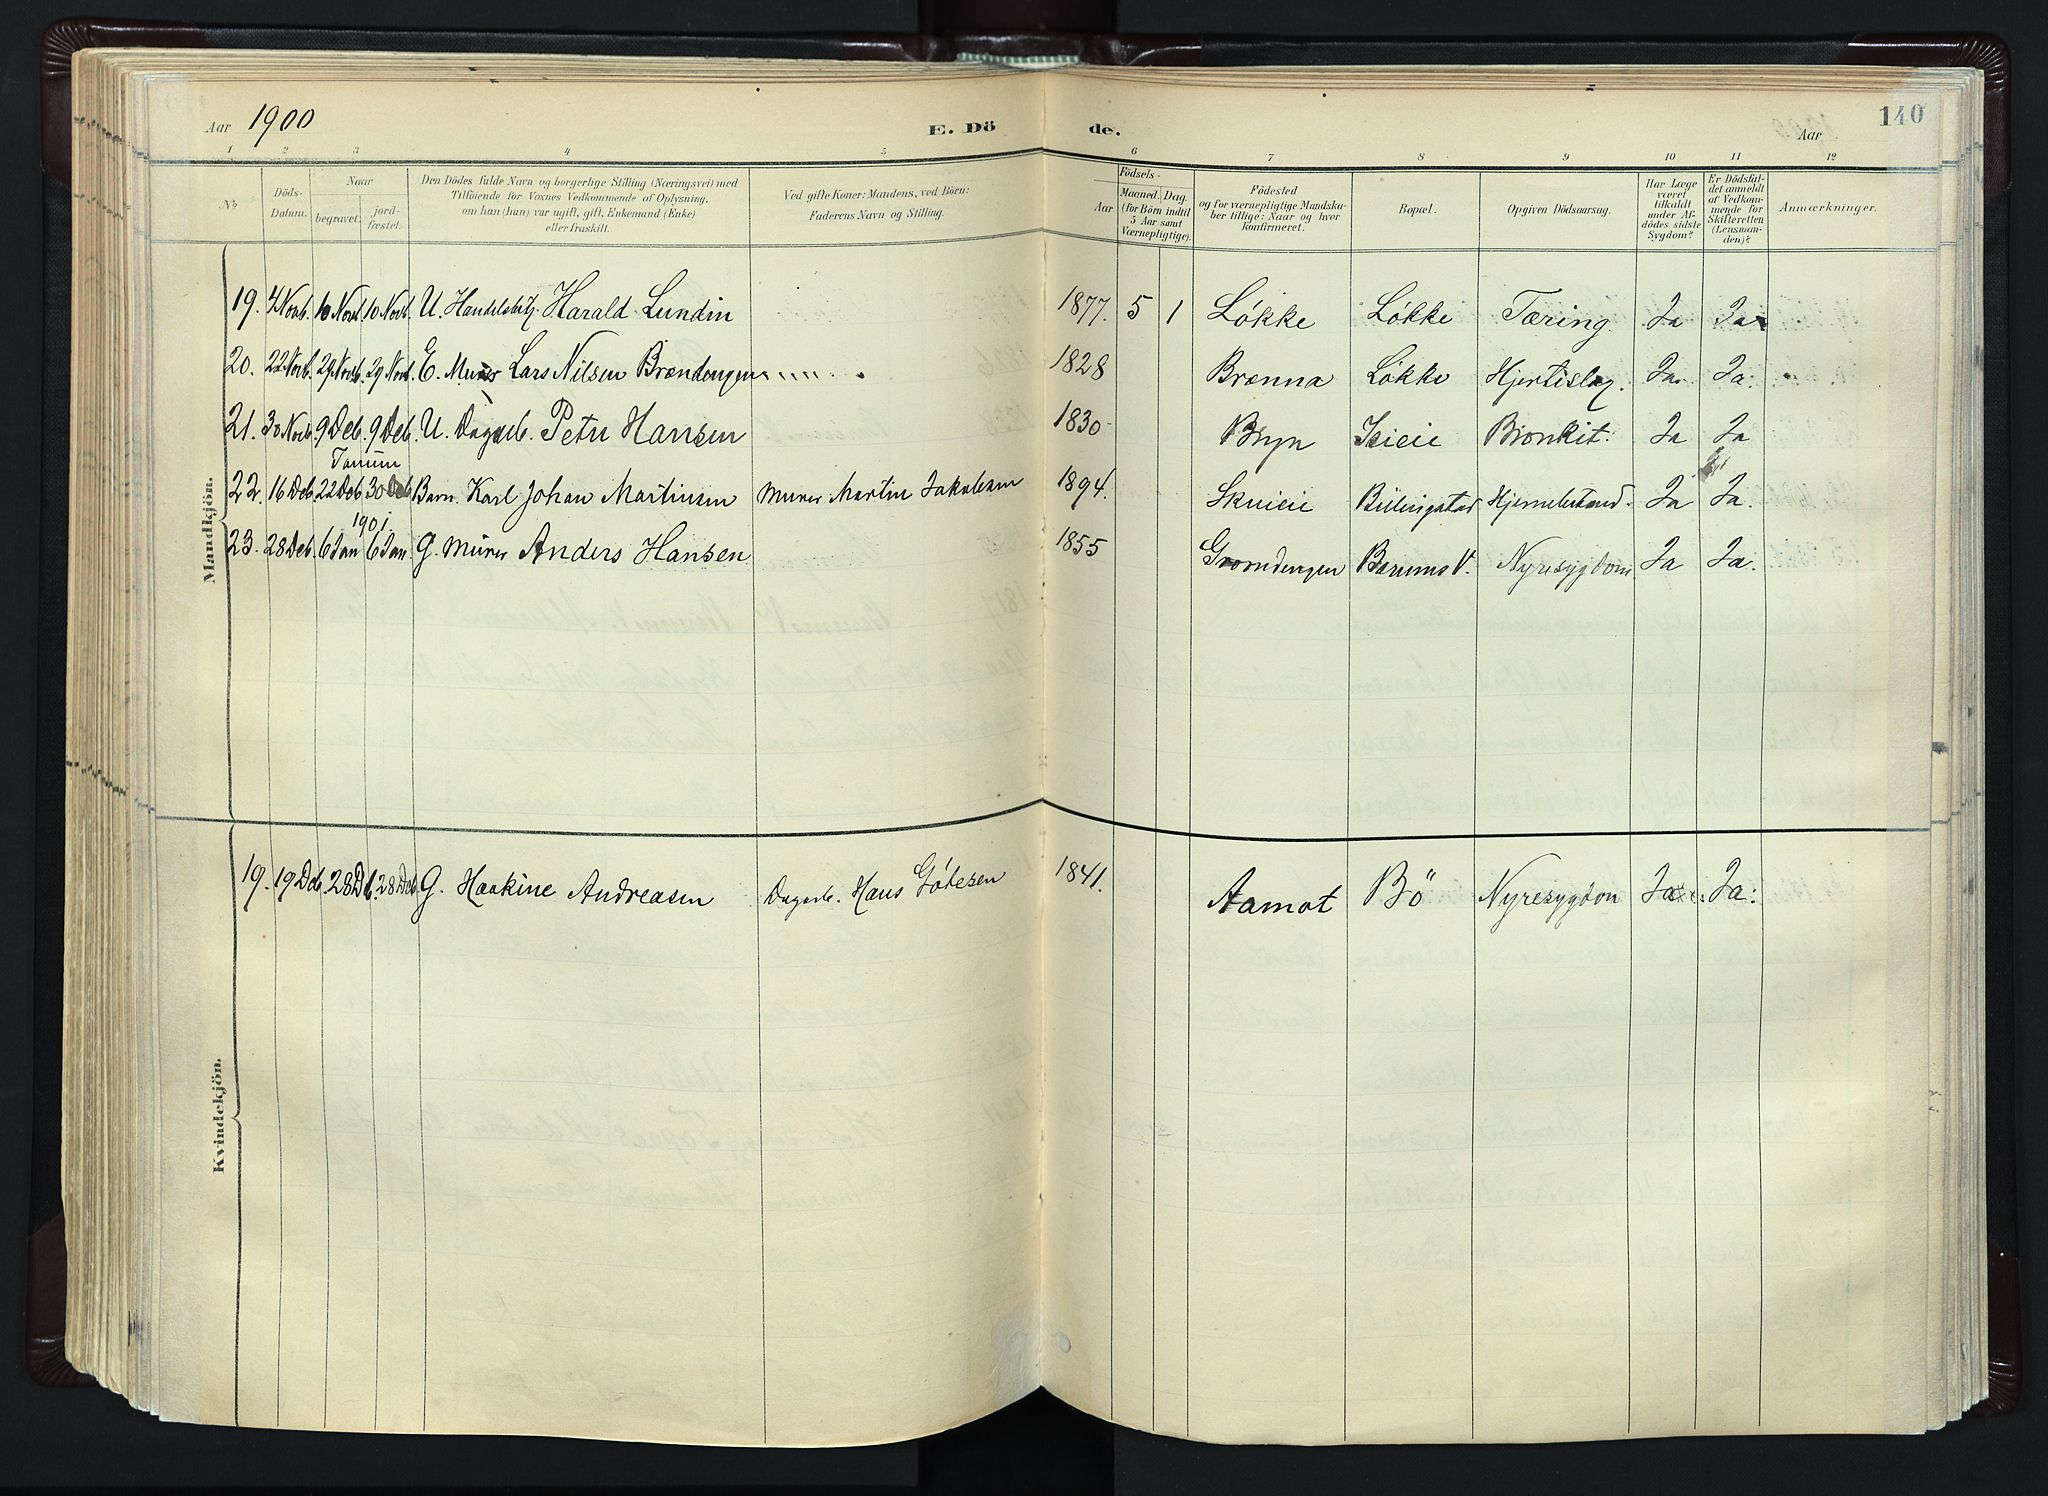 Aar 1900
E. Dö
de.
Aar
140
1 2 3 4 5 6 7 8 9 10 11 12
No
Döds-
Datum.
Naar
begravet.
jord-
fæstet.
Den Dödes fulde Navn og borgerlige Stilling (Næringsvei) med
Tilföiende for Voxnes Vedkommende af Oplysning,
om han (hun) var ugift, gift, Enkemand (Enke)
eller fraskilt.
Ved gifte Koner: Mandens, ved Börn:
Faderens Navn og Stilling.
Födsels-
Aar
Maaned. Dag.
(for Börn indtil
5 Aar samt
Værnepligtige).
Födested
og for værnepligtige Mandska-
ber tillige: Naar og hvor
konfirmeret.
Bopæl.
Opgiven Dödsaarsag.
Har Læge
været
tilkaldt
under Af-
dödes sidste
Sygdom?
Er Dödsfal-
det anmeldt
af Vedkom-
mende for
Skifteretten
(Lensman-
den)?
Anmærkninger.
Mandkjön.
19. 4 Novb. 10 Novb. 10 Novb. U. Handelsbtj. Harald Lundin 1877. 5 1 Løkke Løkke Tæring Ja Ja
20. 22 Novb. 29 Novb. 29 Novb. E. Murer Lars Nilsen Brændengen 1828 Brænna Løkke Hjerteslag. Ja. Ja.
21. 30 Novb. 9 Deb. 9 Deb. U. Dagarb. Peter Hansen 1830 Bryn Bronkit. Ja Ja
Tanum
22. 16 Deb. 22 Deb 30 Deb Barn Karl Johan Martinsen Murer Martin Jakobsen 1894. Skuieie Billingstad Ja Ja.
1901.
23. 28 Deb. 6 Jan 6 Jan G. Murer Anders Hansen 1855 Bærums V. Nyresygdom Ja Ja.
Kvindekjön.
19. 19 Deb. 28 Db. 28 Deb. G. Haakine Andreasen Dagarb. Hans Gótesen 1841. Aamot Bö Nyresygdom Ja Ja.